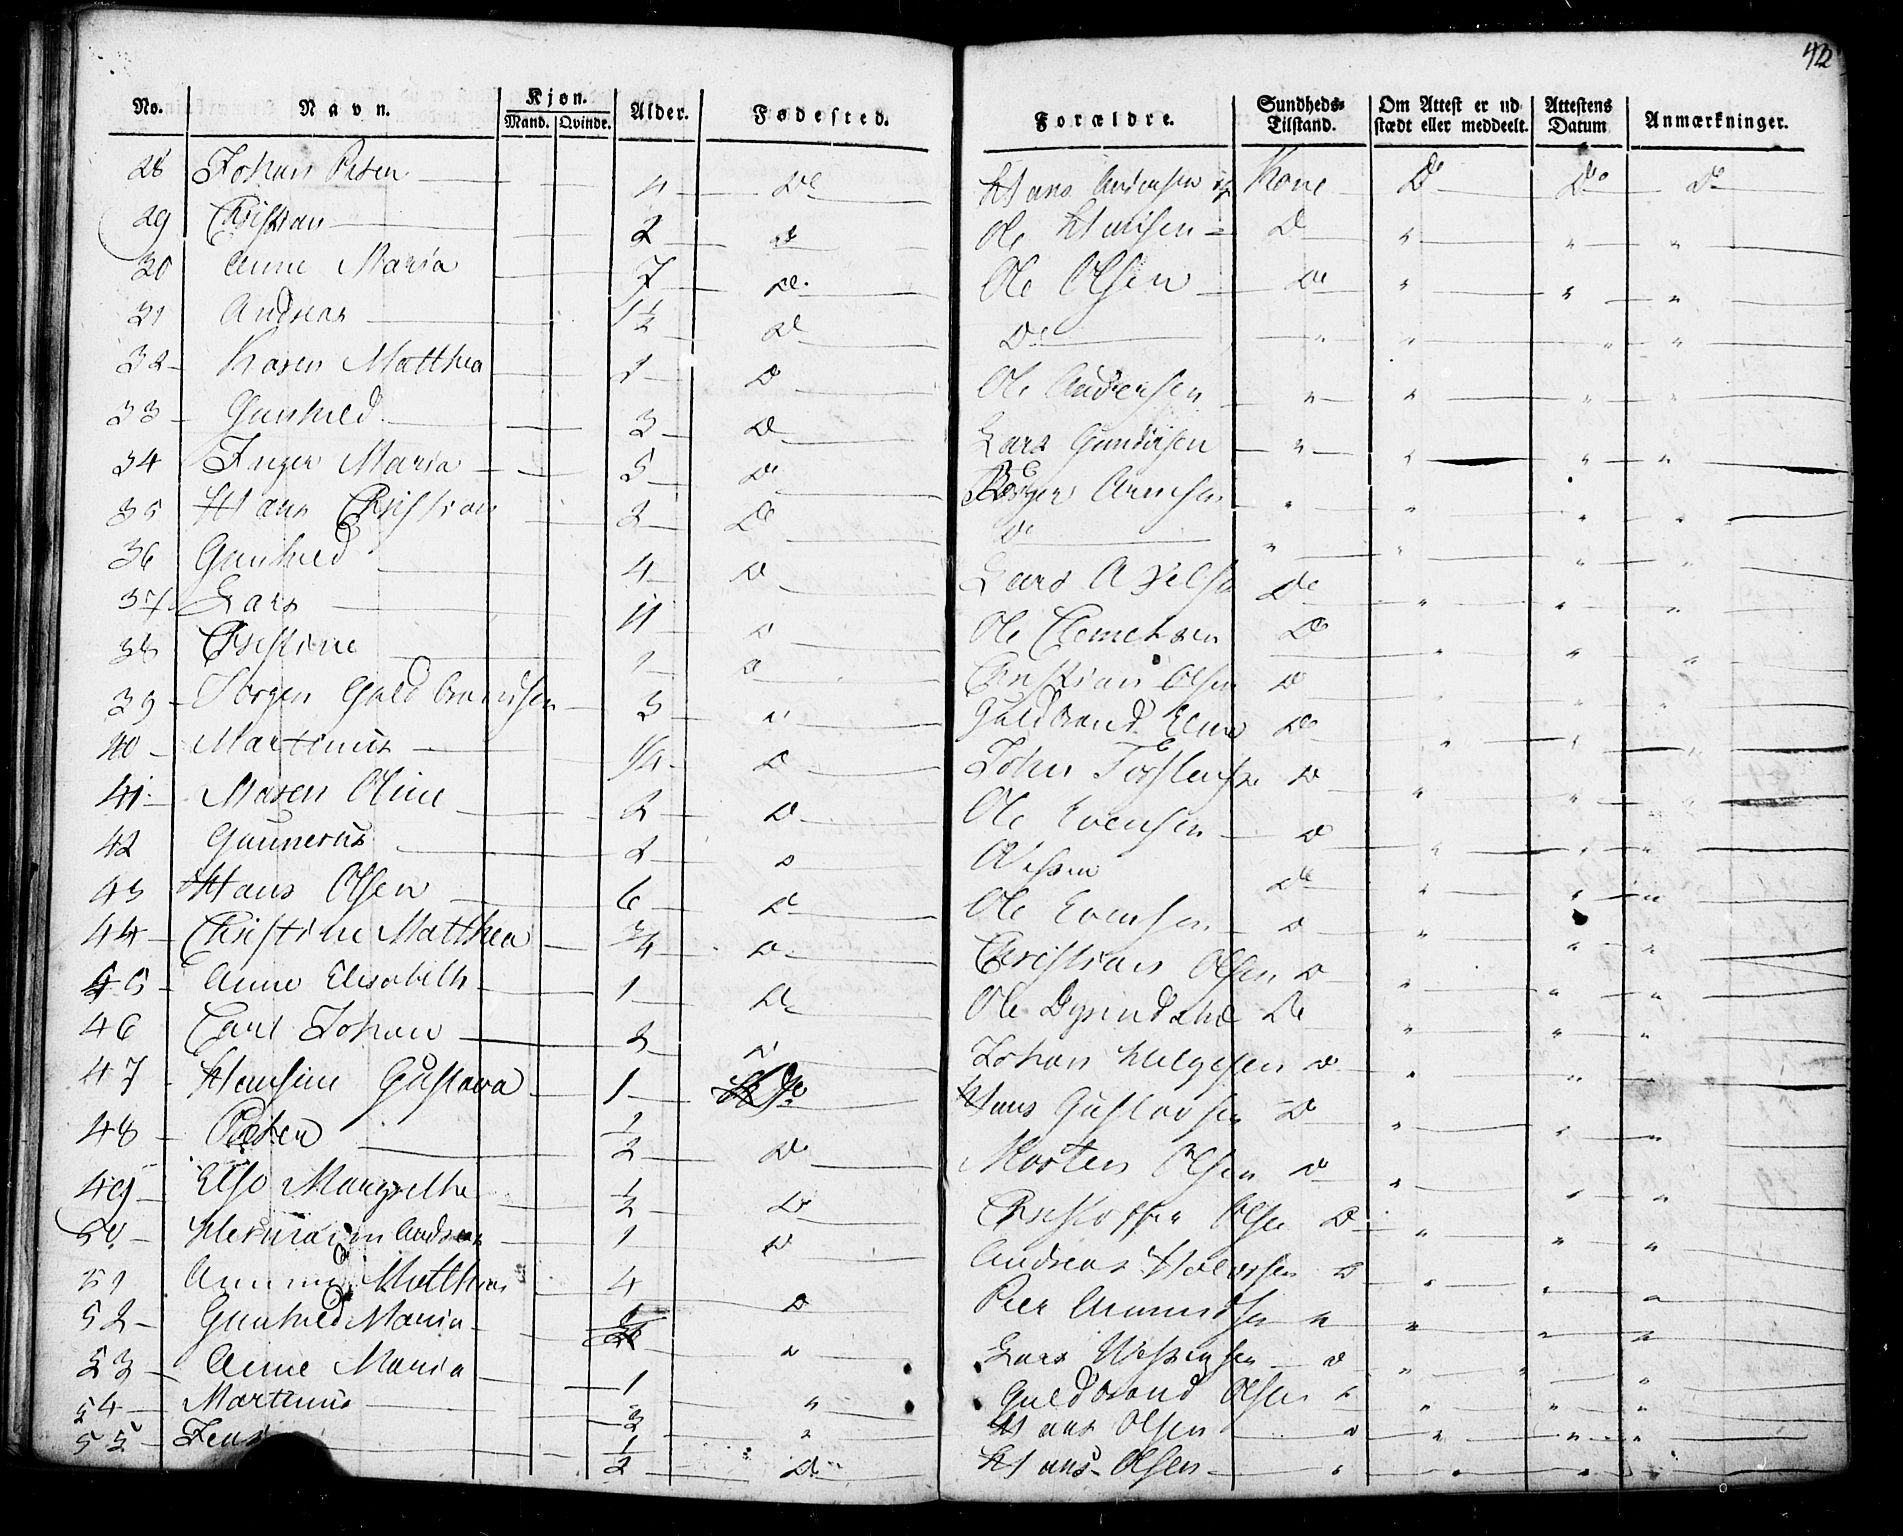 42
No. Navn. Kjøn. Mand. Qvinde. Alder. Fødested. Forældre. Sundheds-Tilstand. Om Attest er udstædt eller meddeelt. Attestens Datum Anmærkninger.
28 Johan Peter 4 Do Hans Andersen og Kone Do Do Do
29 Christian 2 Do Ole Hansen Do " " "
30 Anne Maria 7 Do Ole Olsen Do " " "
31 Andreas 1½ Do Do " " " "
32 Karen Matthea 1 Do Ole Andersen " " " "
33 Gunhild 3 Do Lars Gundersen " " " "
34 Inger Maria 5 Do Børger Arnesen " " " "
35 Hans Christian 2 Do Do " " " "
36 Gunhild 4 Do Lars Do " " "
37 Lars 11 Do Ole Clemetsen Do " " "
38 Christine 1 Do Christian Olsen Do " " "
39 Jørgen Guldbrandsen 3 Do Guldbrand Do " " "
40 Martinus 1/4 Do John Torstensen Do " " "
41 Maren Oline 2 Do Ole Evensen Do " " "
42 Gunnerus 2 Do Do " " "
43 Hans Olsen 6 Do Ole Evensen Do " " "
44 Christine Matthea 3/4 Do Christian Olsen Do " " "
45 Anne Elisabeth 1 Do Ole Do " " "
46 Carl Johan 3 Do Johan Helgesen Do " " "
47 Hansine Gustava 1 Do Hans Gustavsen Do " " "
48 Peter ½ Do Morten Olsen Do " " "
49 Else Margrethe ½ Do Christopher Olsen Do " " "
50 Andreas 1 Do Andreas Halvorsen Do " " "
51 Matthea 4 Do Peer Amundsen " " " "
52 Gunhild Maria Do Lars Do " " "
53 Anne Maria 1 " Guldbrand Olsen " " " "
54 Martinus " Hans Olsen " " " "
55 Jens ½ Do Hans Olsen " " " "